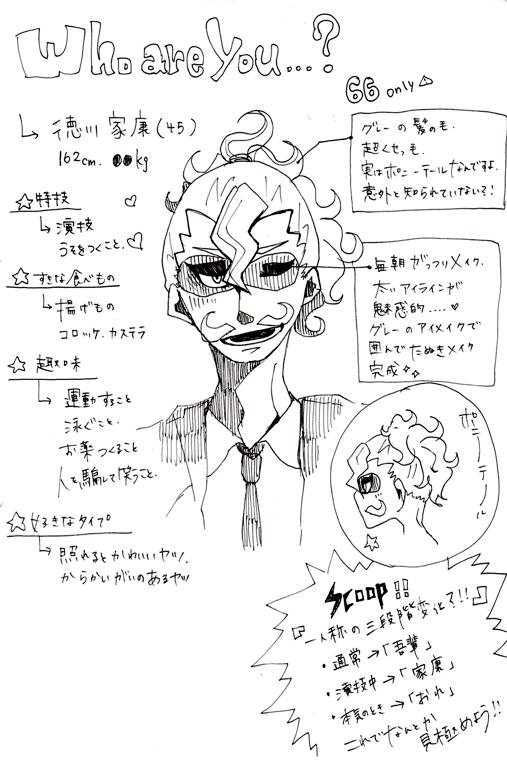 Who are You...?
66 only
徳川 家康(45)
162cm. ●●kg
☆特技
演技
うそをつくこと。♡
☆すきな食べもの
揚げもの
コロッケ、カステラ
☆趣味
運動すること
泳ぐこと。
お薬つくること
人を騙して笑うこと。
☆好きなタイプ
照れるとかわいいヤツ。
からかいがいのあるヤツ
グレーの髪のも。
超くせっも。
実はポニーテールなんですよ。
意外と知られていない?!
毎朝がっつりメイク。
太いアイラインが
魅惑的....♥
グレーのアイメイクで
囲んでたぬきメイク
完成
ポニーテール
Scoop!!
『一人称の三段階変化?!!』
・通常→「吾輩」
・演技中→「家康」
・本気のとき→「おれ」
これでなんとか
見極めよう!!